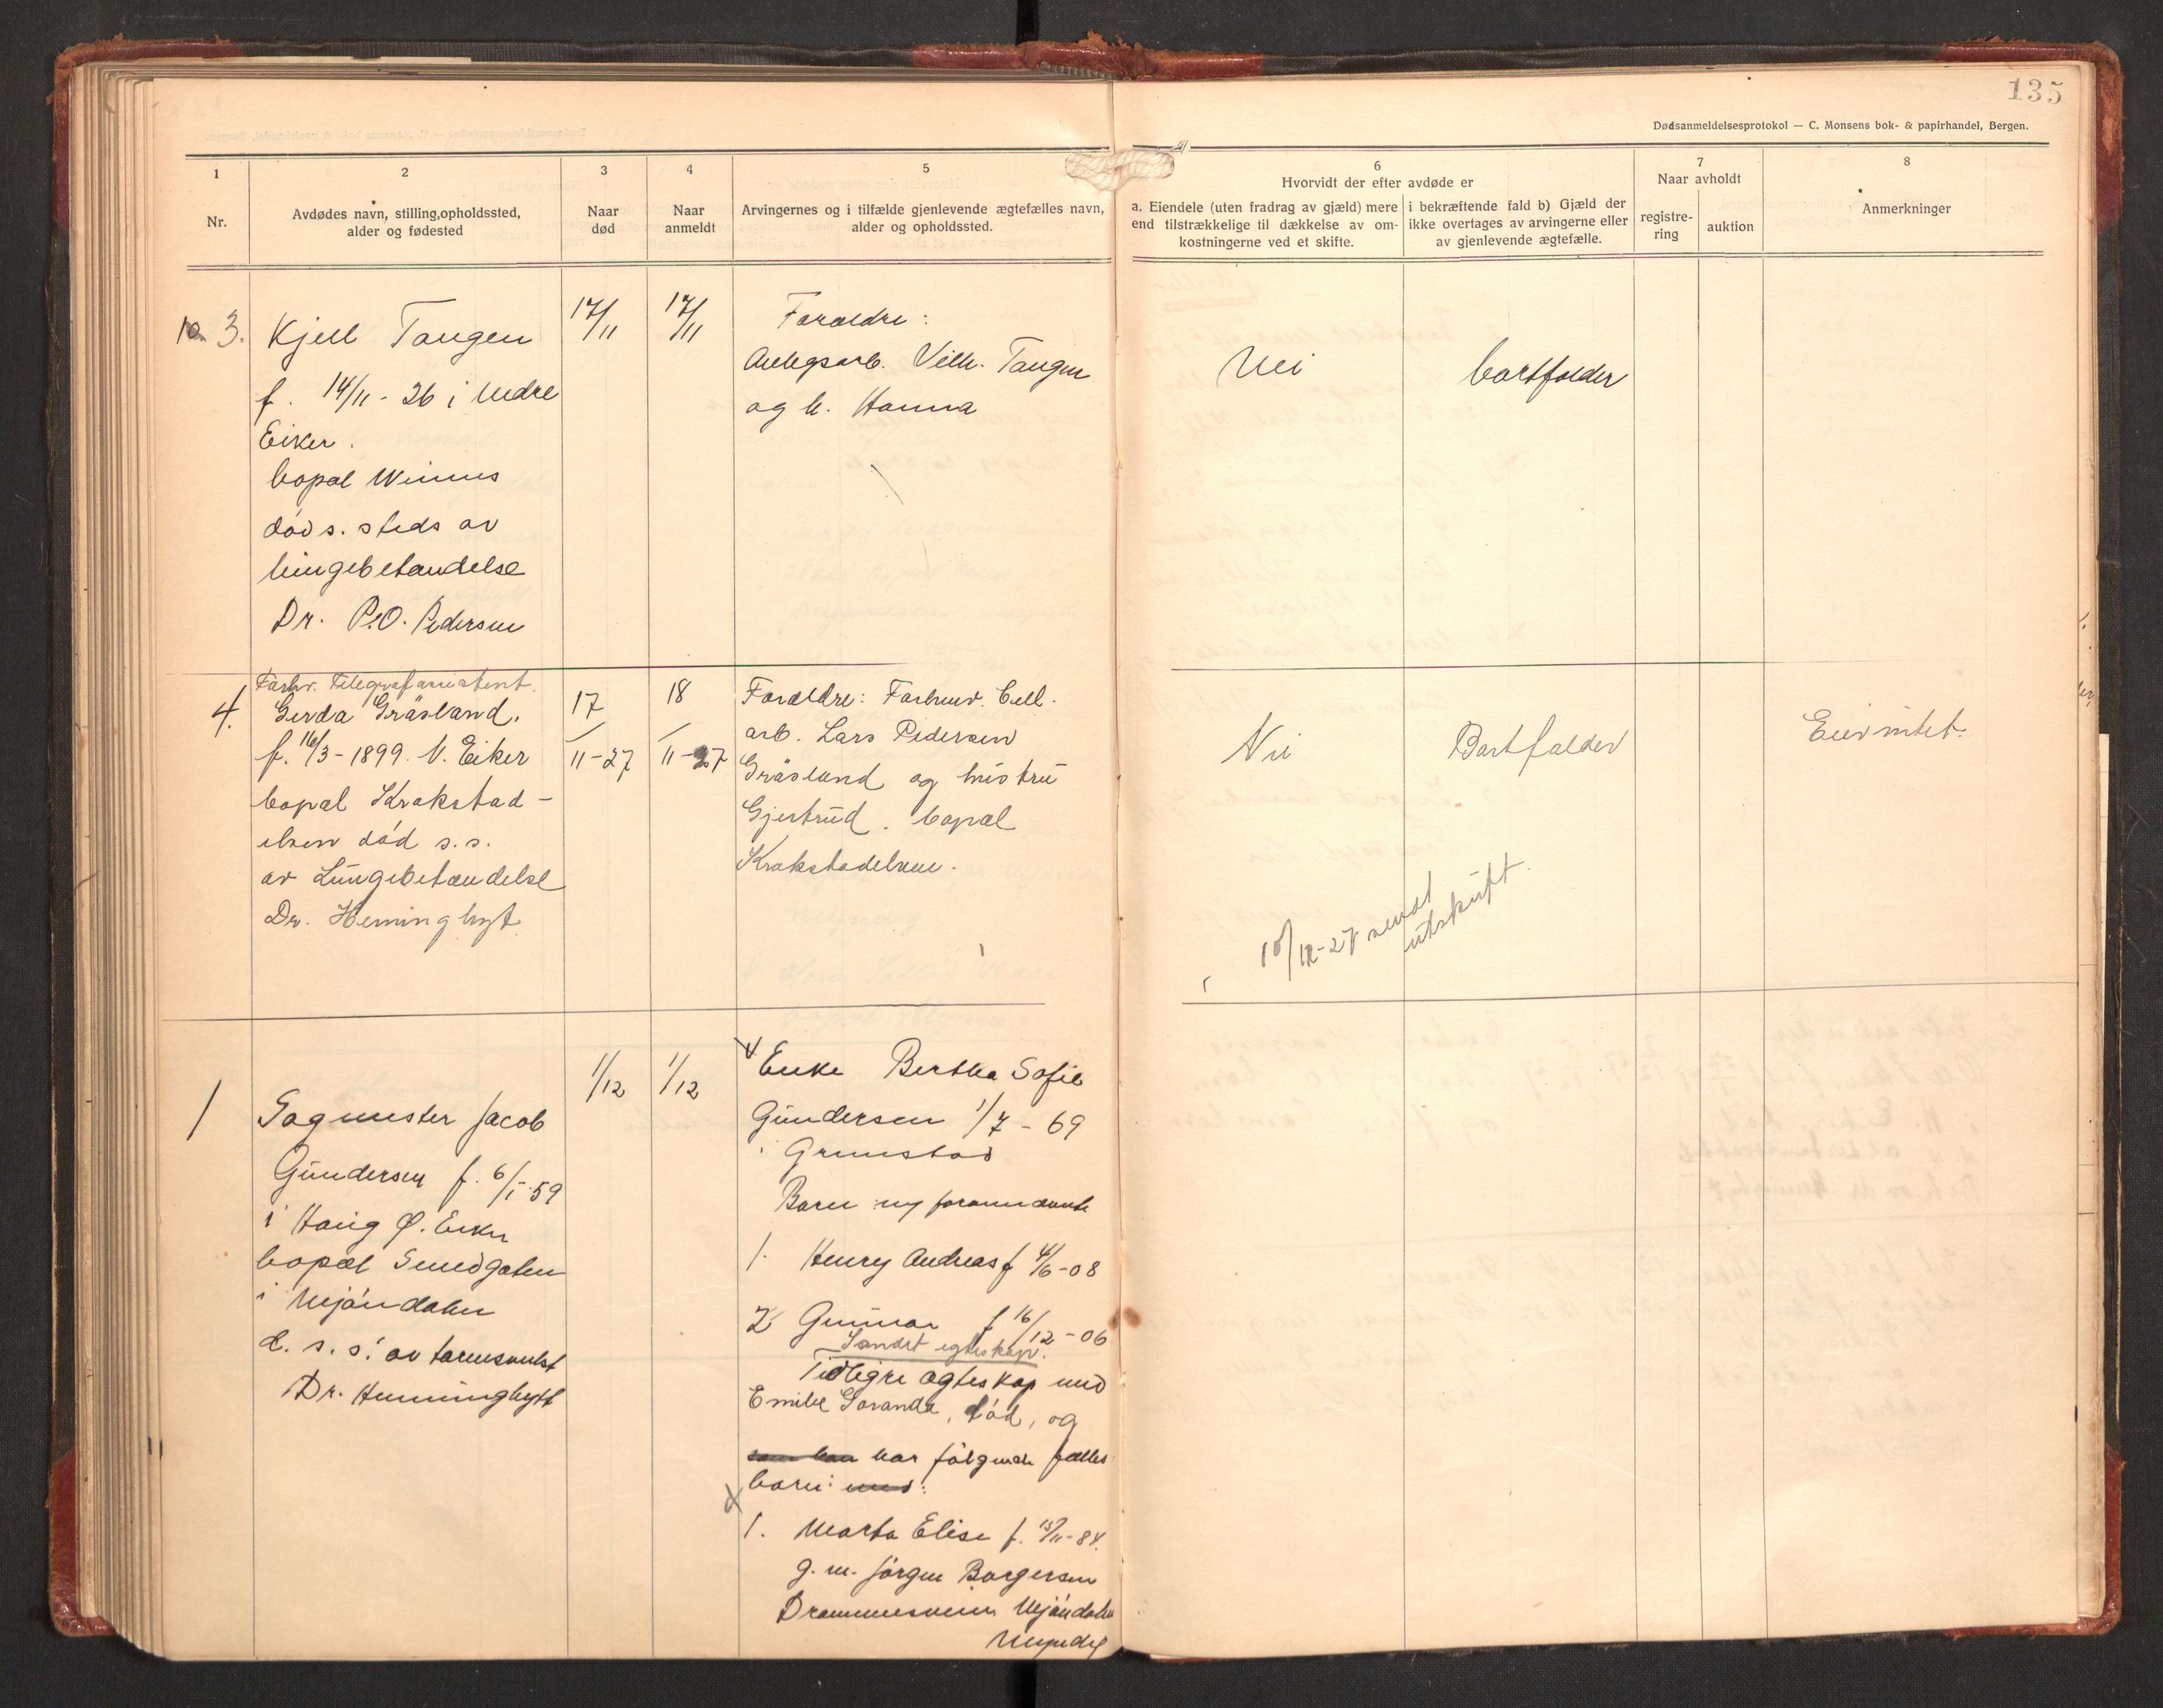 135
Dødsanmeldelsesprotokol — C. Monsens bok- & papirhandel, Bergen.
1
Nr.
2
Avdødes navn, stilling, opholdssted,
alder og fødested
3
Naar
død
4
Naar
anmeldt
5
Arvingernes og i tilfælde gjenlevende ægtefælles navn,
alder og opholdssted.
6
Hvorvidt der efter avdøde er
a. Eiendele (uten fradrag av gjæld) mere
end tilstrækkelige til dækkelse av om-
kostningerne ved et skifte.
i bekræftende fald b) Gjæld der
ikke overtages av arvingerne eller
av gjenlevende ægtefælle.
7
Naar avholdt
registre-
ring
auktion
8
Anmerkninger
3.
Kjell Tangen
f. 14/11 - 26 i Nedre
Eiker.
bopæl
død s. steds av
lungebetændelse
Dr. P.O. Pedersen
17/11
17/11
Forældre:
Vilh. Tangen
og h. Hanna
Nei
bortfalder
4.
Forhv. Telegrafassistent.
Gerda Gråsland.
f. 16/3 - 1899. N. Eiker
bopæl Krokstad-
elven død s. s.
av Lungebetændelse
Dr. Heminghyt
17
/
11-27
18
/
11-27
Forældre: Forhenv. Cell.
arb. Lars Pedersen
Gråsland og hustru
Gjertrud. bopæl
Krokstadelven.
Nei
Bortfalder
Eier intet.
/12-27 sendt
utskrift.
1
Sagmester Jacob
Gundersen f. 6/1-59
i Haug Ø. Eiker
bopæl Sundgaten
i Mjøndalen
d. s. s. av tarmsvulst
Dr. Heminghytt
1/12
1/12
Enke Bertha Sofie
Gundersen 1/7 - 69
i Grimstad
Barn
1. Henry Andreas f 4/6-08
2 Gunnar f 16/12-06
egteskap.
Tidligre ægteskap med
Emilie død, og
som han har følgende fælles
barn: med:
1. Marta Elise f. 15/11-84.
g. m. Jørgen Borgersen
Drammensveien Mjøndalen
Myndig